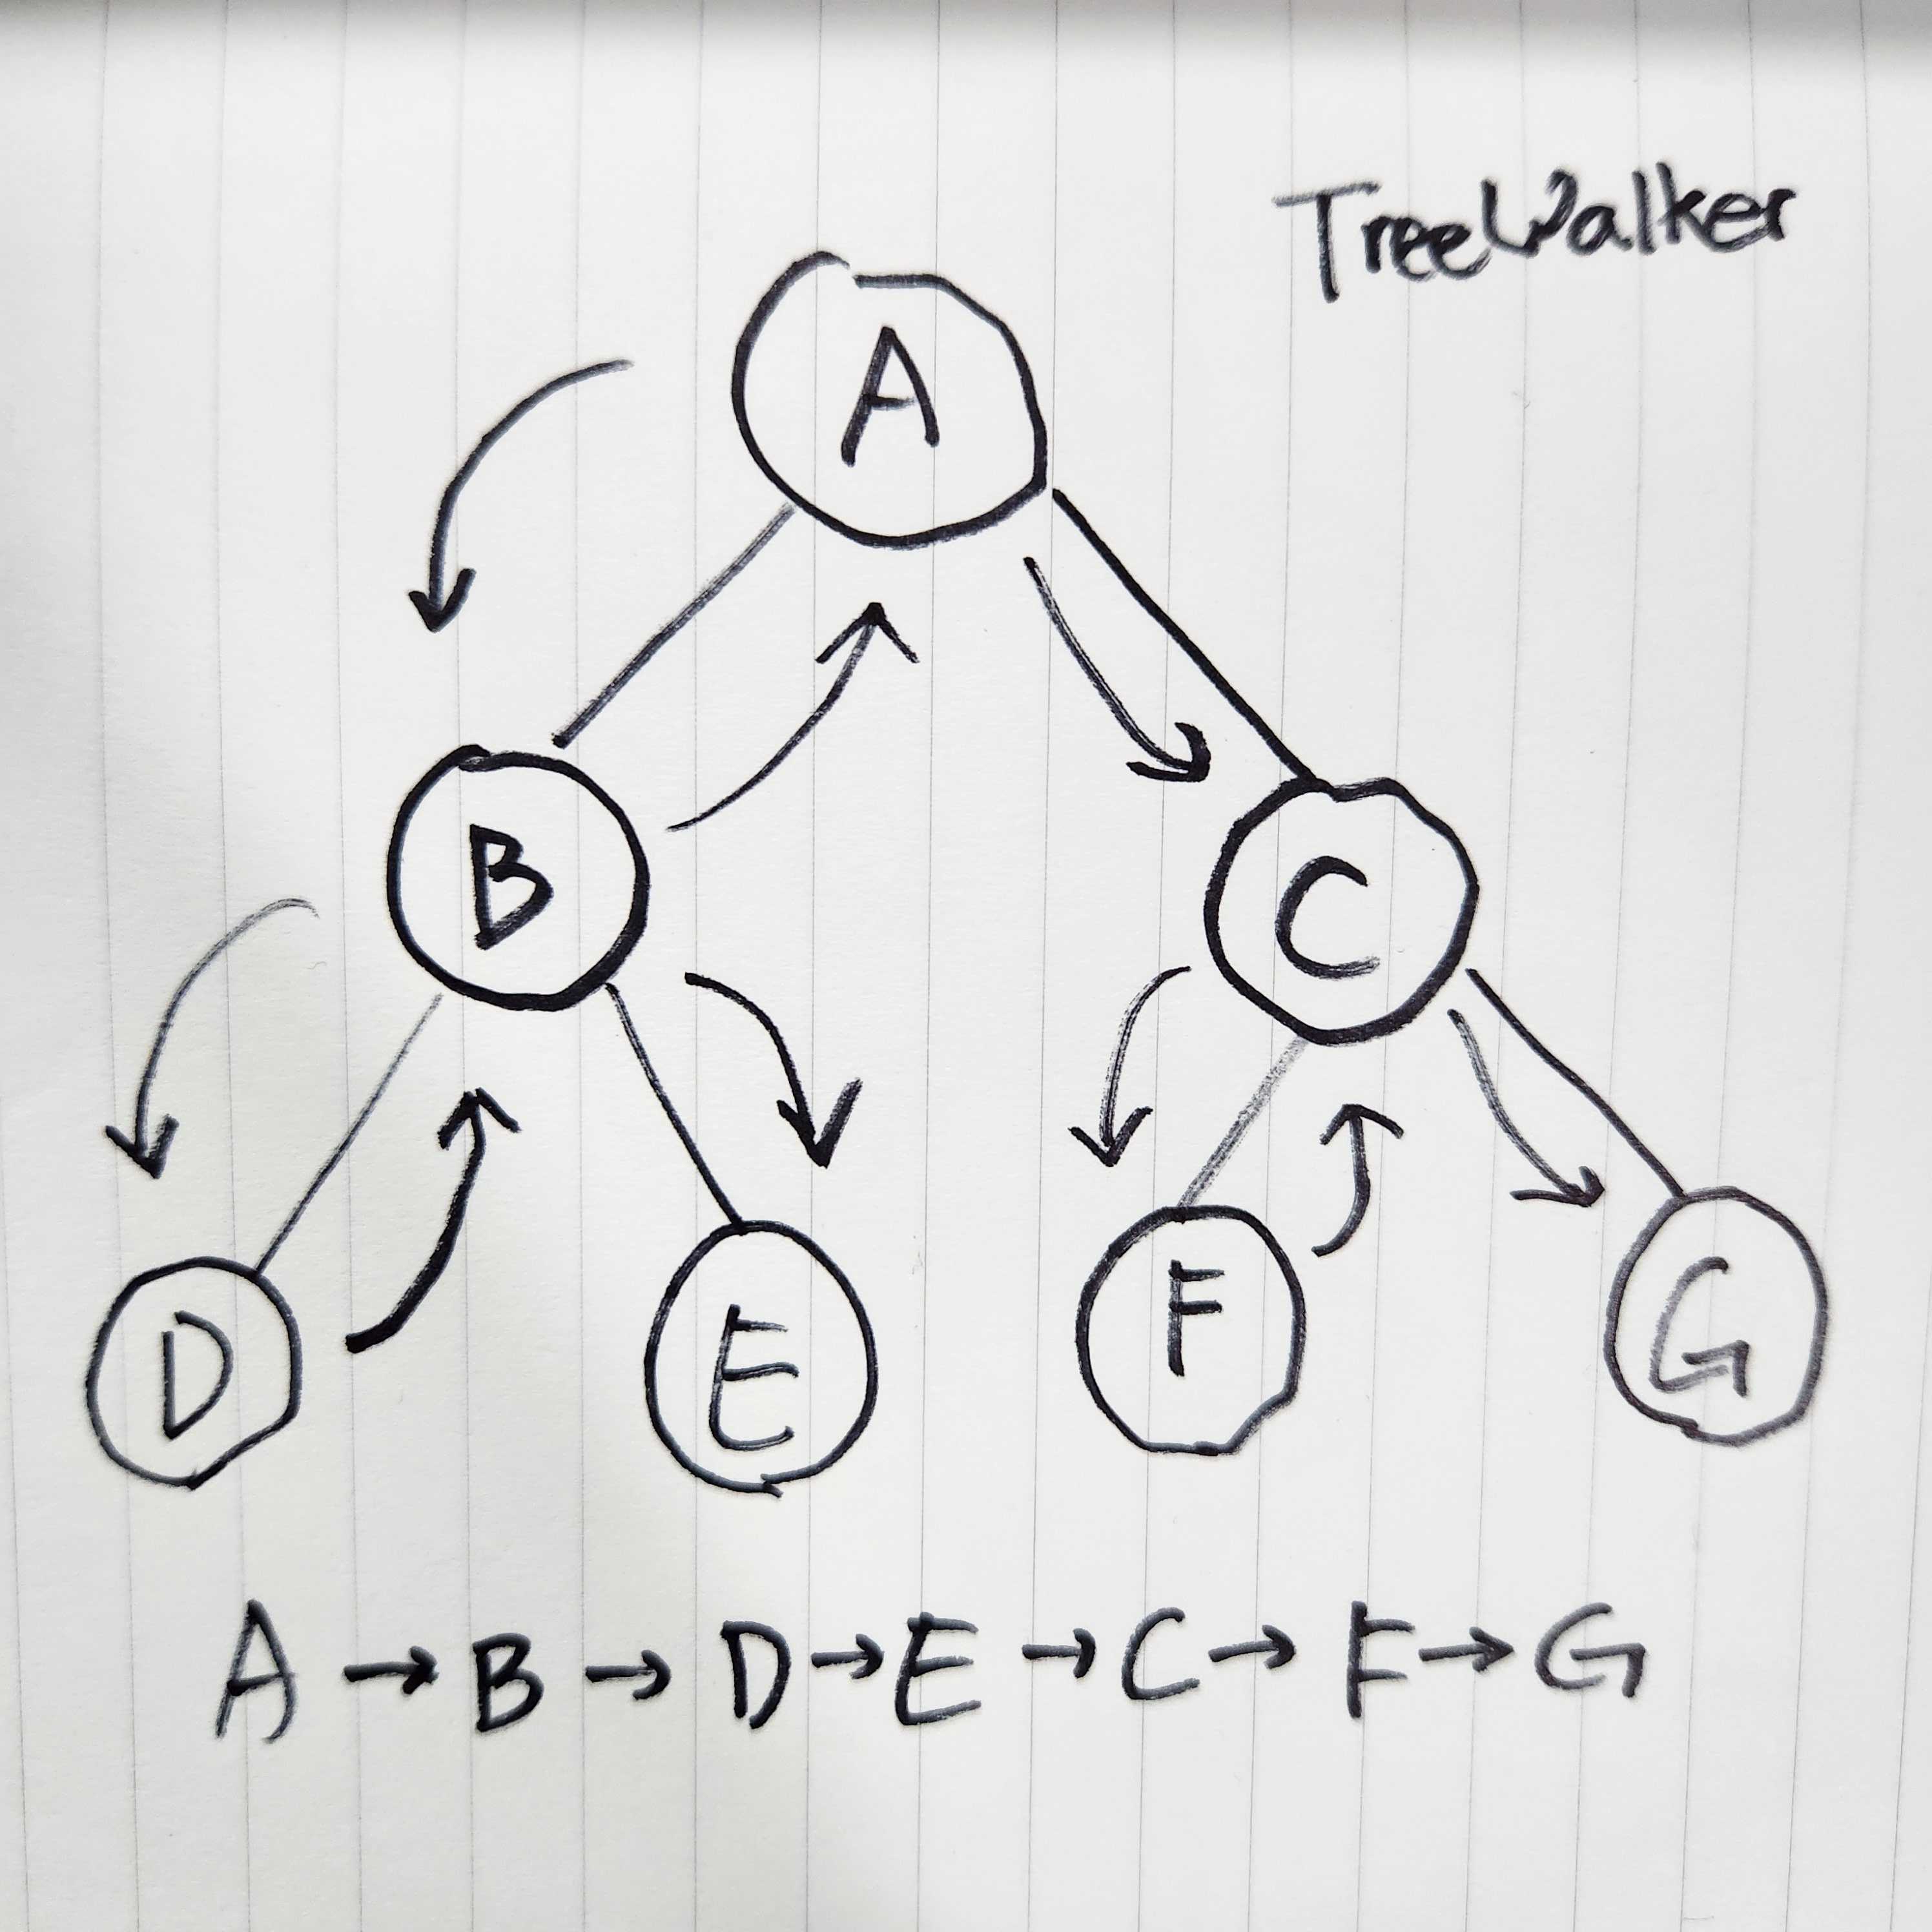 TreeWalker
A
B
C
D
E
F
G
A → B → D → E → C → F → G